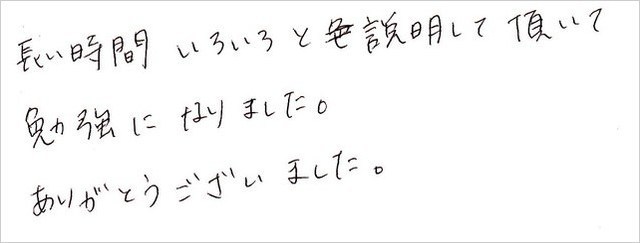 長い時間 いろいろと説明して 頂いて
勉強に なりました。
ありがとうございました。